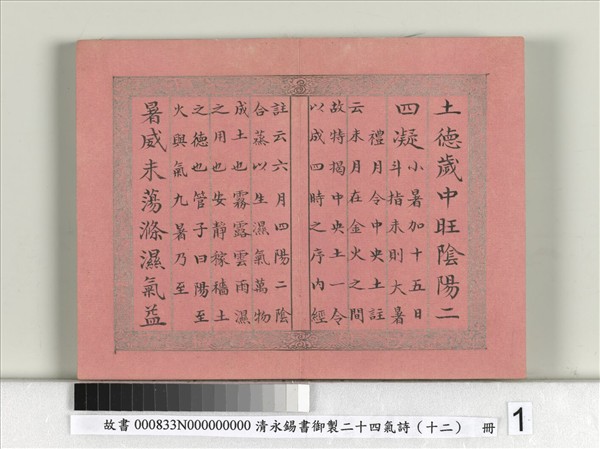 土德歲中旺陰陽二
四凝小暑加十五日
斗指未則大暑
禮月令中央土註
云未月在金火之間
故特揭中央土一令
以成四時之序内經
註云六月四陽二陰
合蒸以生濕氣萬物
成土也霧露雲雨濕
之用也安靜稼穡土
之德也管子曰陽至
火與氣九暑乃至
暑威未蕩滌濕氣益
故書 000833N000000000 清永錫書御製二十四氣詩（十二） 冊
1